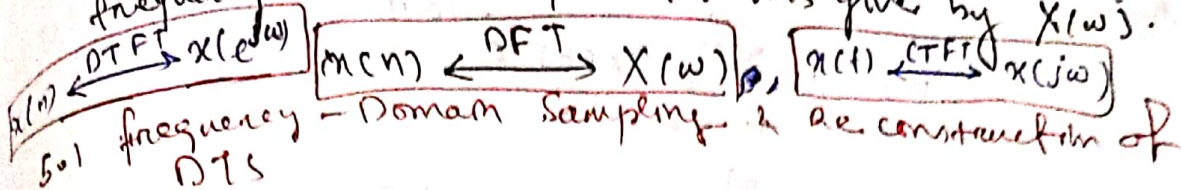 given by X(ω).
x(n) DTFT x(e^jω) x(n) DFT X(ω), x(t) CTFT x(jω)
5.1 frequency - Domain Sampling & Reconstruction of
DTS